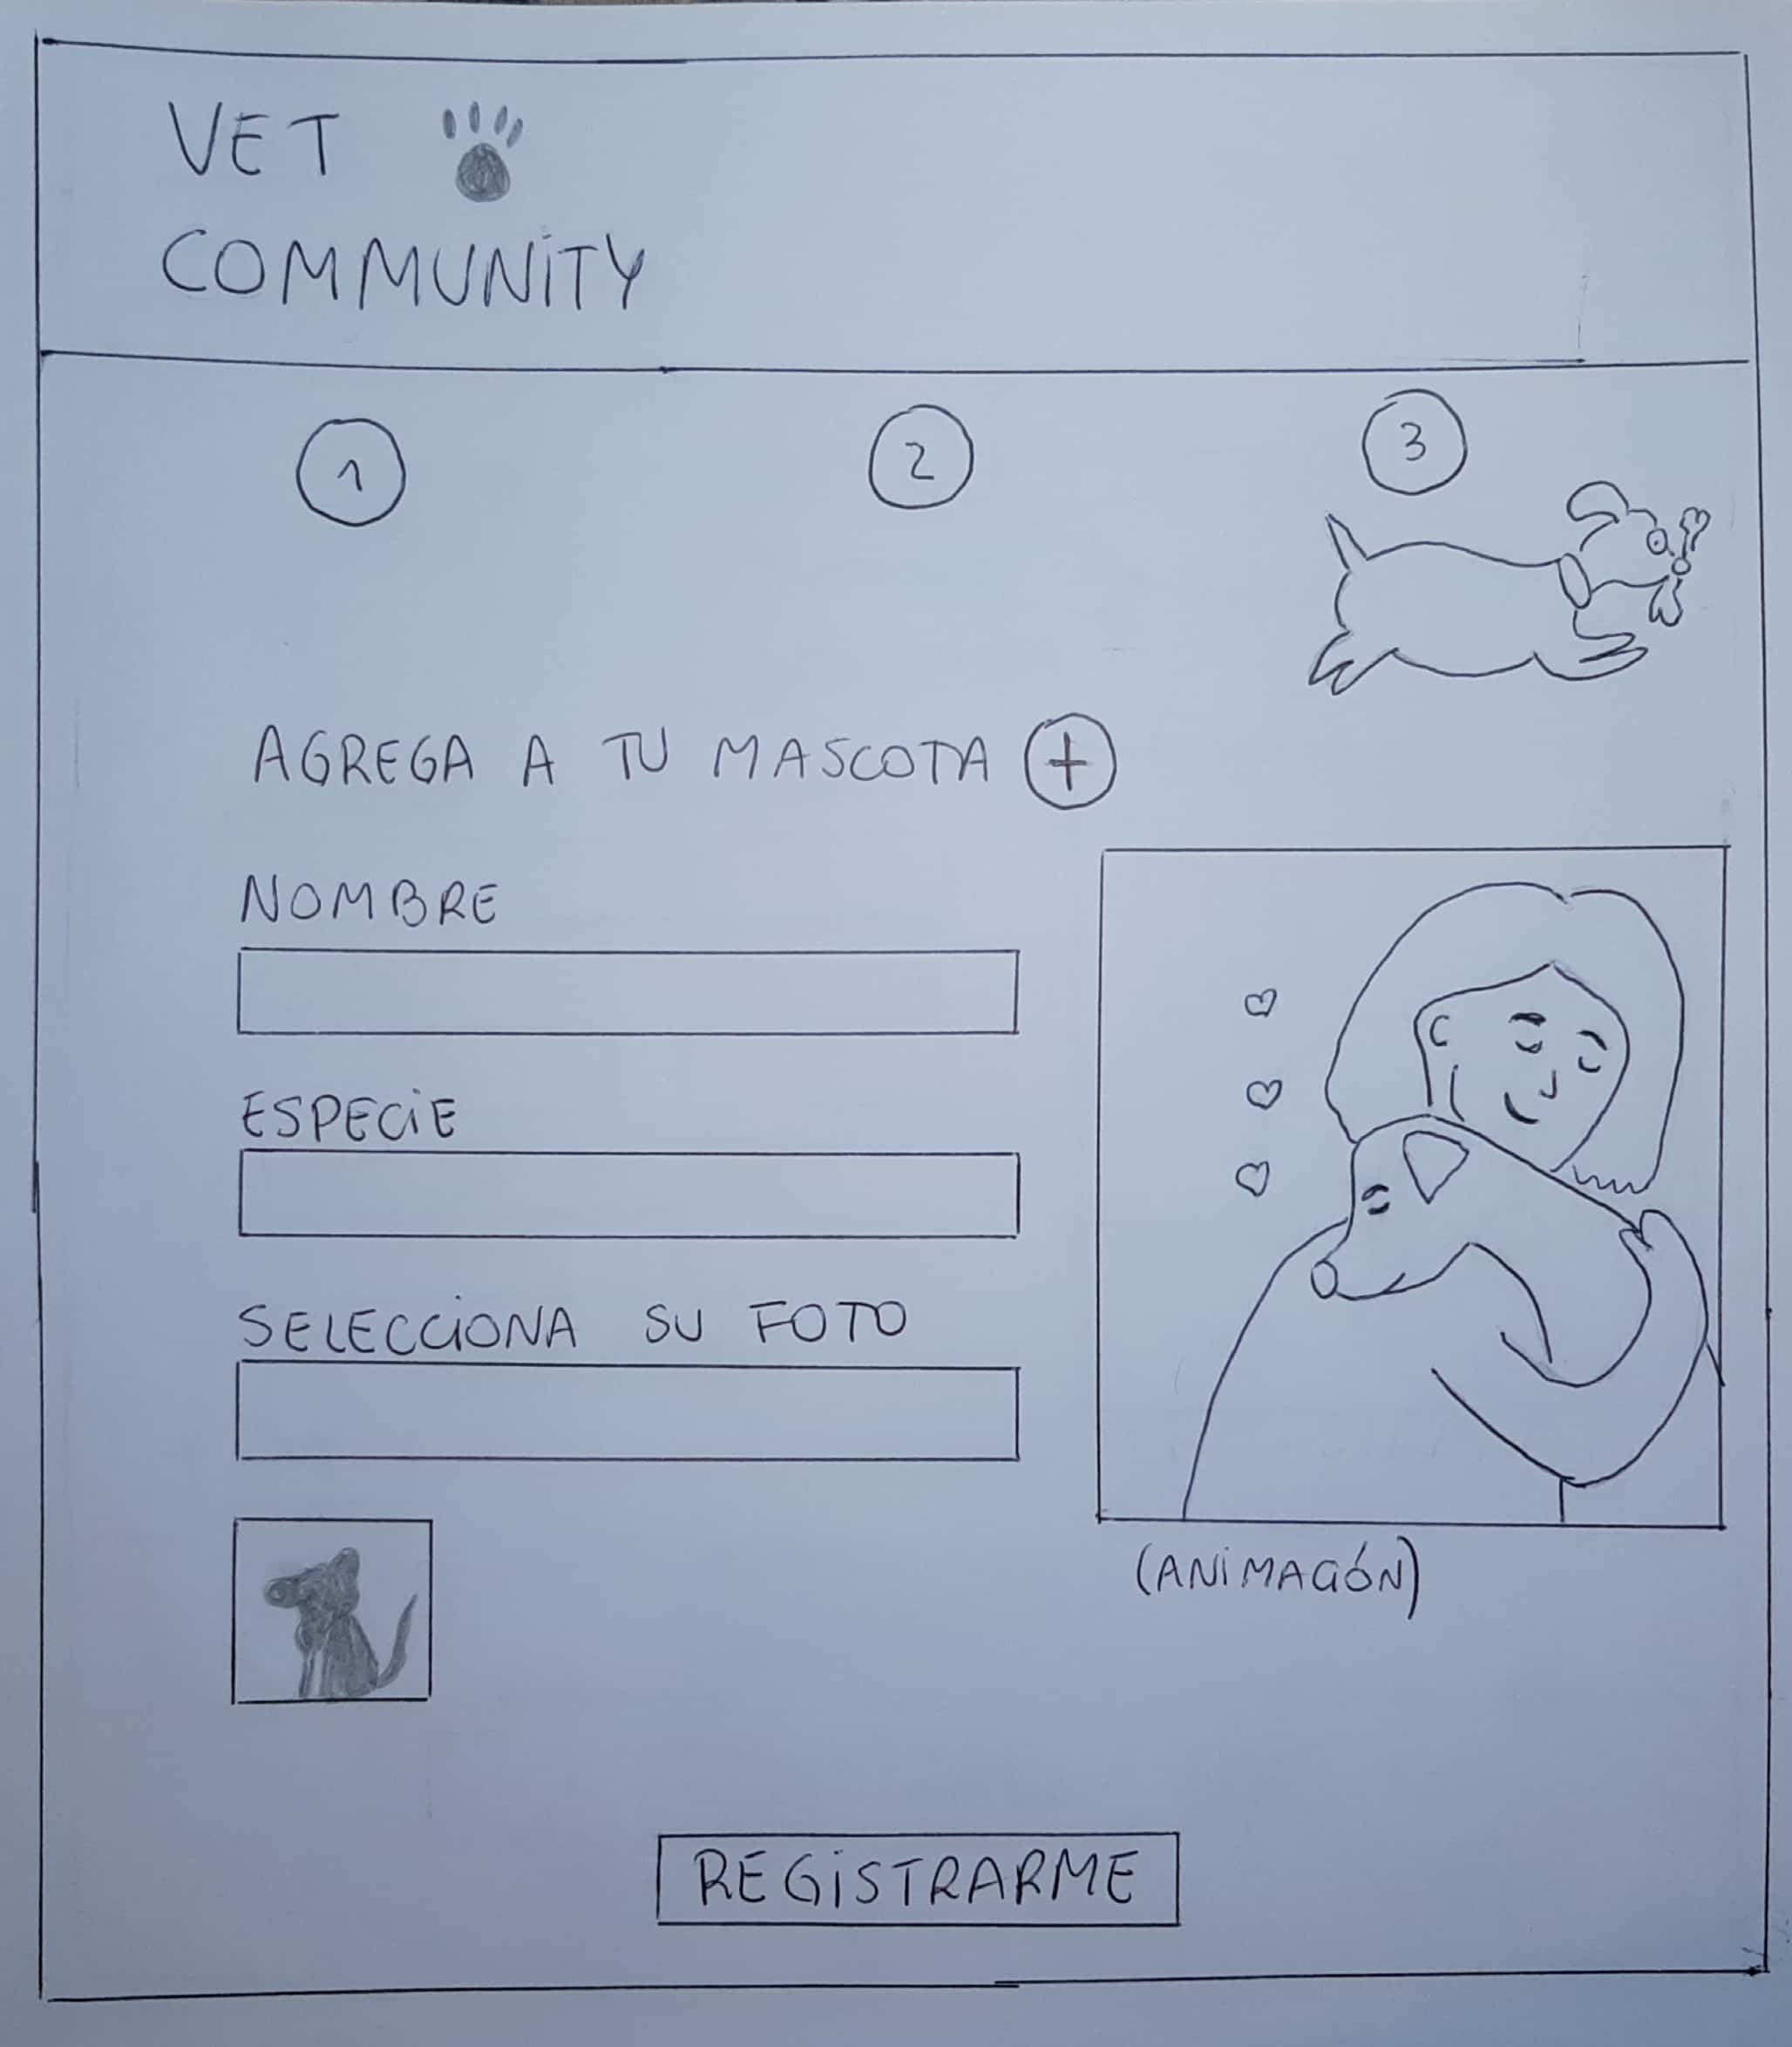 VET
COMMUNITY
1 2 3
AGREGA A TU MASCOTA +
NOMBRE
ESPECIE
SELECCIONA SU FOTO
(ANIMACIÓN)
REGISTRARME